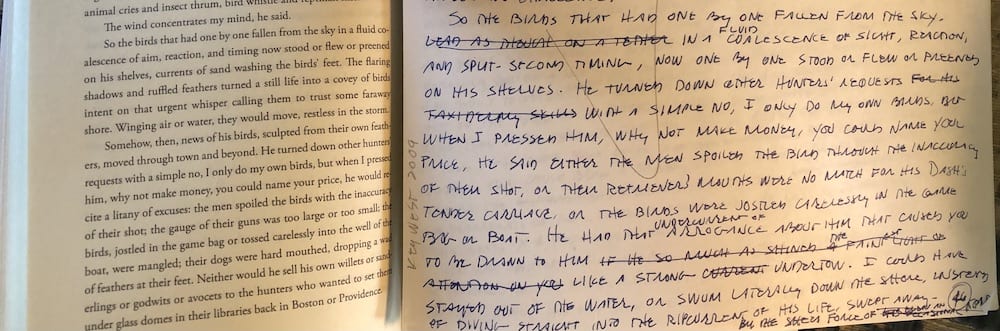 animal cries and insect thrum, bird whistle and
The wind concentrates my mind, he said.
So the birds that had one by one fallen from the sky in a fluid co-
alescence of aim, reaction, and timing now stood or flew or preened
on his shelves, currents of sand washing the birds' feet. The flaring
shadows and ruffled feathers turned a still life into a covey of birds
intent on that urgent whisper calling them to trust some faraway
shore. Winging air or water, they would move, restless in the storm.
Somehow, then, news of his birds, sculpted from their own feath-
ers, moved through town and beyond. He turned down other hunters'
requests with a simple no, I only do my own birds, but when I pressed
him, why not make money, you could name your price, he would re-
cite a litany of excuses: the men spoiled the birds with the inaccuracy
of their shot; the gauge of their guns was too large or too small; the
birds, jostled in the game bag or tossed carelessly into the well of the
boat, were mangled; their dogs were hard mouthed, dropping a wad
of feathers at their feet. Neither would he sell his own willets or sand-
erlings or godwits or avocets to the hunters who wanted to set them
under glass domes in their libraries back in Boston or Providence.
KEY WEST 2009
SO THE BIRDS THAT HAD ONE BY ONE FALLEN FROM THE SKY
FLUID
LEAD AS THOUGH ON A TETHER IN A COALESCENCE OF SIGHT, REACTION,
AND SPLIT-SECOND TIMING, NOW ONE BY ONE STOOD OR FLEW OR PREENED
ON HIS SHELVES. HE TURNED DOWN OTHER HUNTERS' REQUESTS FOR HIS
TAXIDERMY SKILLS WITH A SIMPLE NO, I ONLY DO MY OWN BIRDS, BUT
WHEN I PRESSED HIM, WHY NOT MAKE MONEY, YOU COULD NAME YOUR
PRICE, HE SAID EITHER THE MEN SPOILED THE BIRD THROUGH THE INACCURACY
OF THEIR SHOT, OR THEIR RETRIEVERS' MOUTHS WERE NO MATCH FOR HIS DASH'S
TENDER CARRIAGE, OR THE BIRDS WERE JOSTLED CARELESSLY IN THE GAME
UNDERCURRENT OF
BAG OR BOAT. HE HAD THAT ARROGANCE ABOUT HIM THAT CAUSED YOU
TO BE DRAWN TO HIM IF HE SO MUCH AS SHINED THE FAINT LIGHT OF
ATTENTION ON YOU LIKE A STRONG CURRENT UNDERTOW. I COULD HAVE
STAYED OUT OF THE WATER, OR SWUM LATERALLY DOWN THE SHORE, INSTEAD
OF DIVING STRAIGHT INTO THE RIPCURRENT OF HIS LIFE, SWEPT AWAY
BY THE SHEER FORCE OF